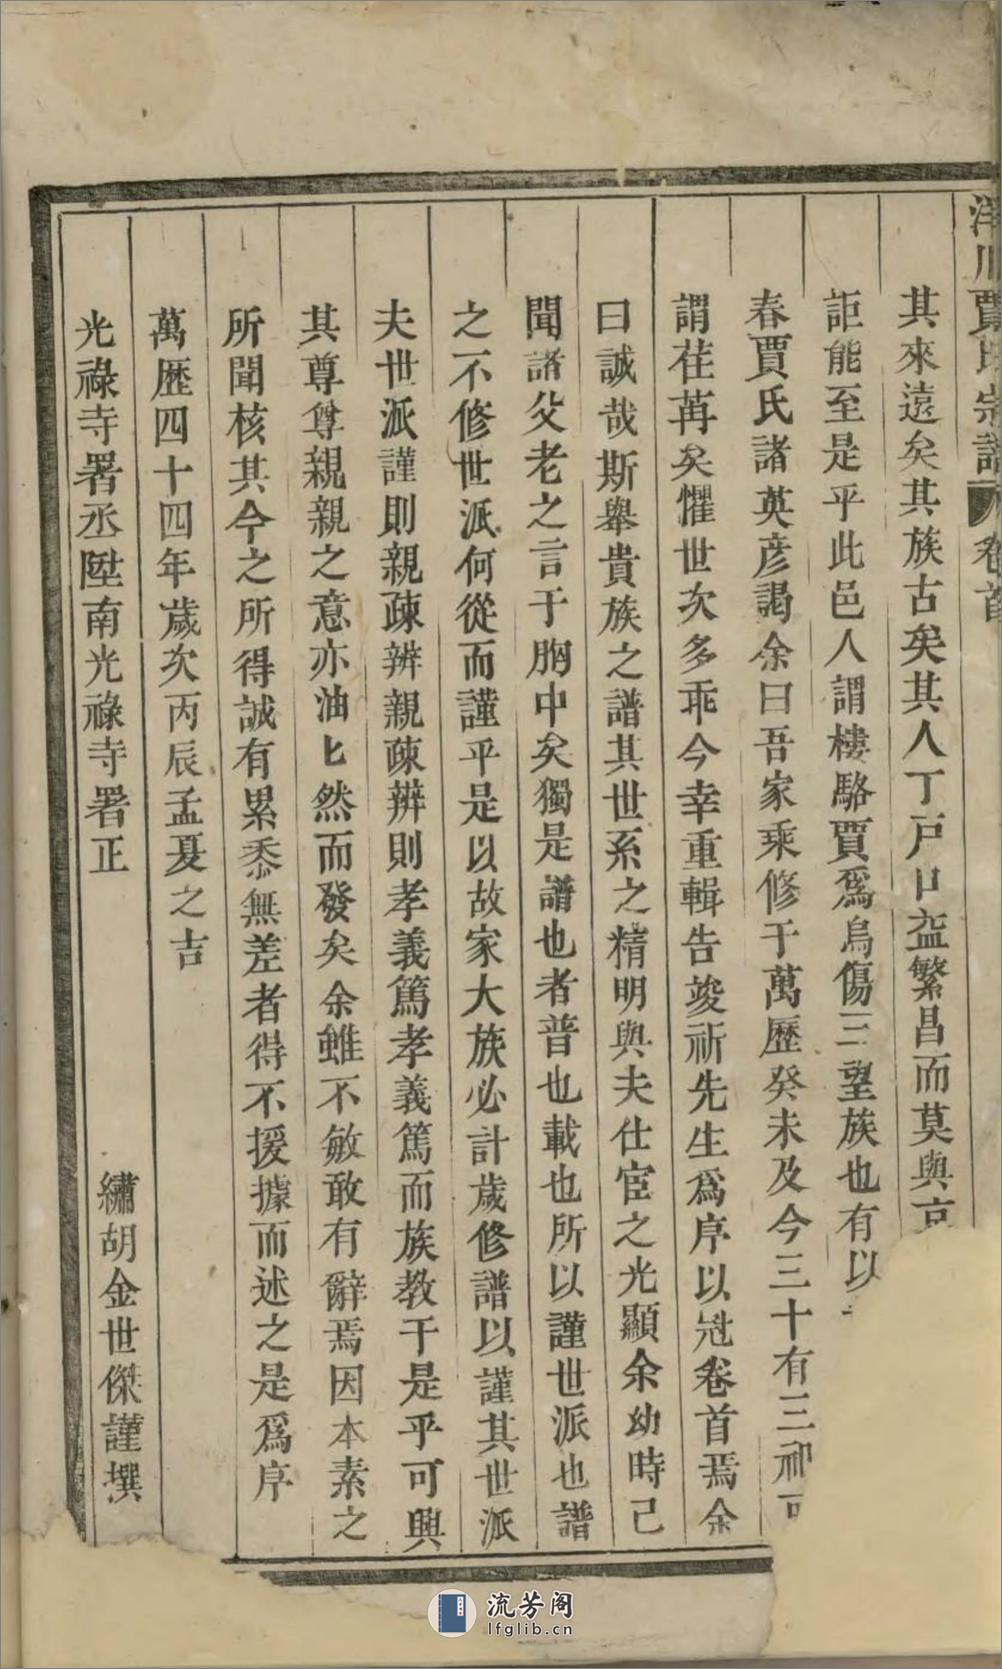 洋川賈氏宗譜 卷首
其來遠矣其族古矣其人丁戸口益繁昌而莫與京
詎能至是乎此邑人謂樓駱賈爲烏傷三望族也有以
春賈氏諸英彦謁余曰吾家乘修于萬歷癸未及今三十有三祀可
謂荏苒矣懼世次多乖今幸重輯告竣祈先生爲序以冠卷首焉余
曰誠哉斯舉貴族之譜其世系之精明與夫仕宦之光顯余幼時己
聞諸父老之言于胸中矣獨是譜也者普也載也所以謹世派也譜
之不修世派何從而謹乎是以故家大族必計歲修譜以謹其世派
夫世派謹則親疎辨親疎辨則孝義篤孝義篤而族教于是乎可興
其尊尊親親之意亦油匕然而發矣余雖不敏敢有辭焉因本素之
所聞核其今之所得誠有累黍無差者得不援據而述之是爲序
萬歷四十四年歲次丙辰孟夏之吉
光祿寺署丞陞南光祿寺署正 繡胡金世傑謹撰
流芳阁
lfglib.cn